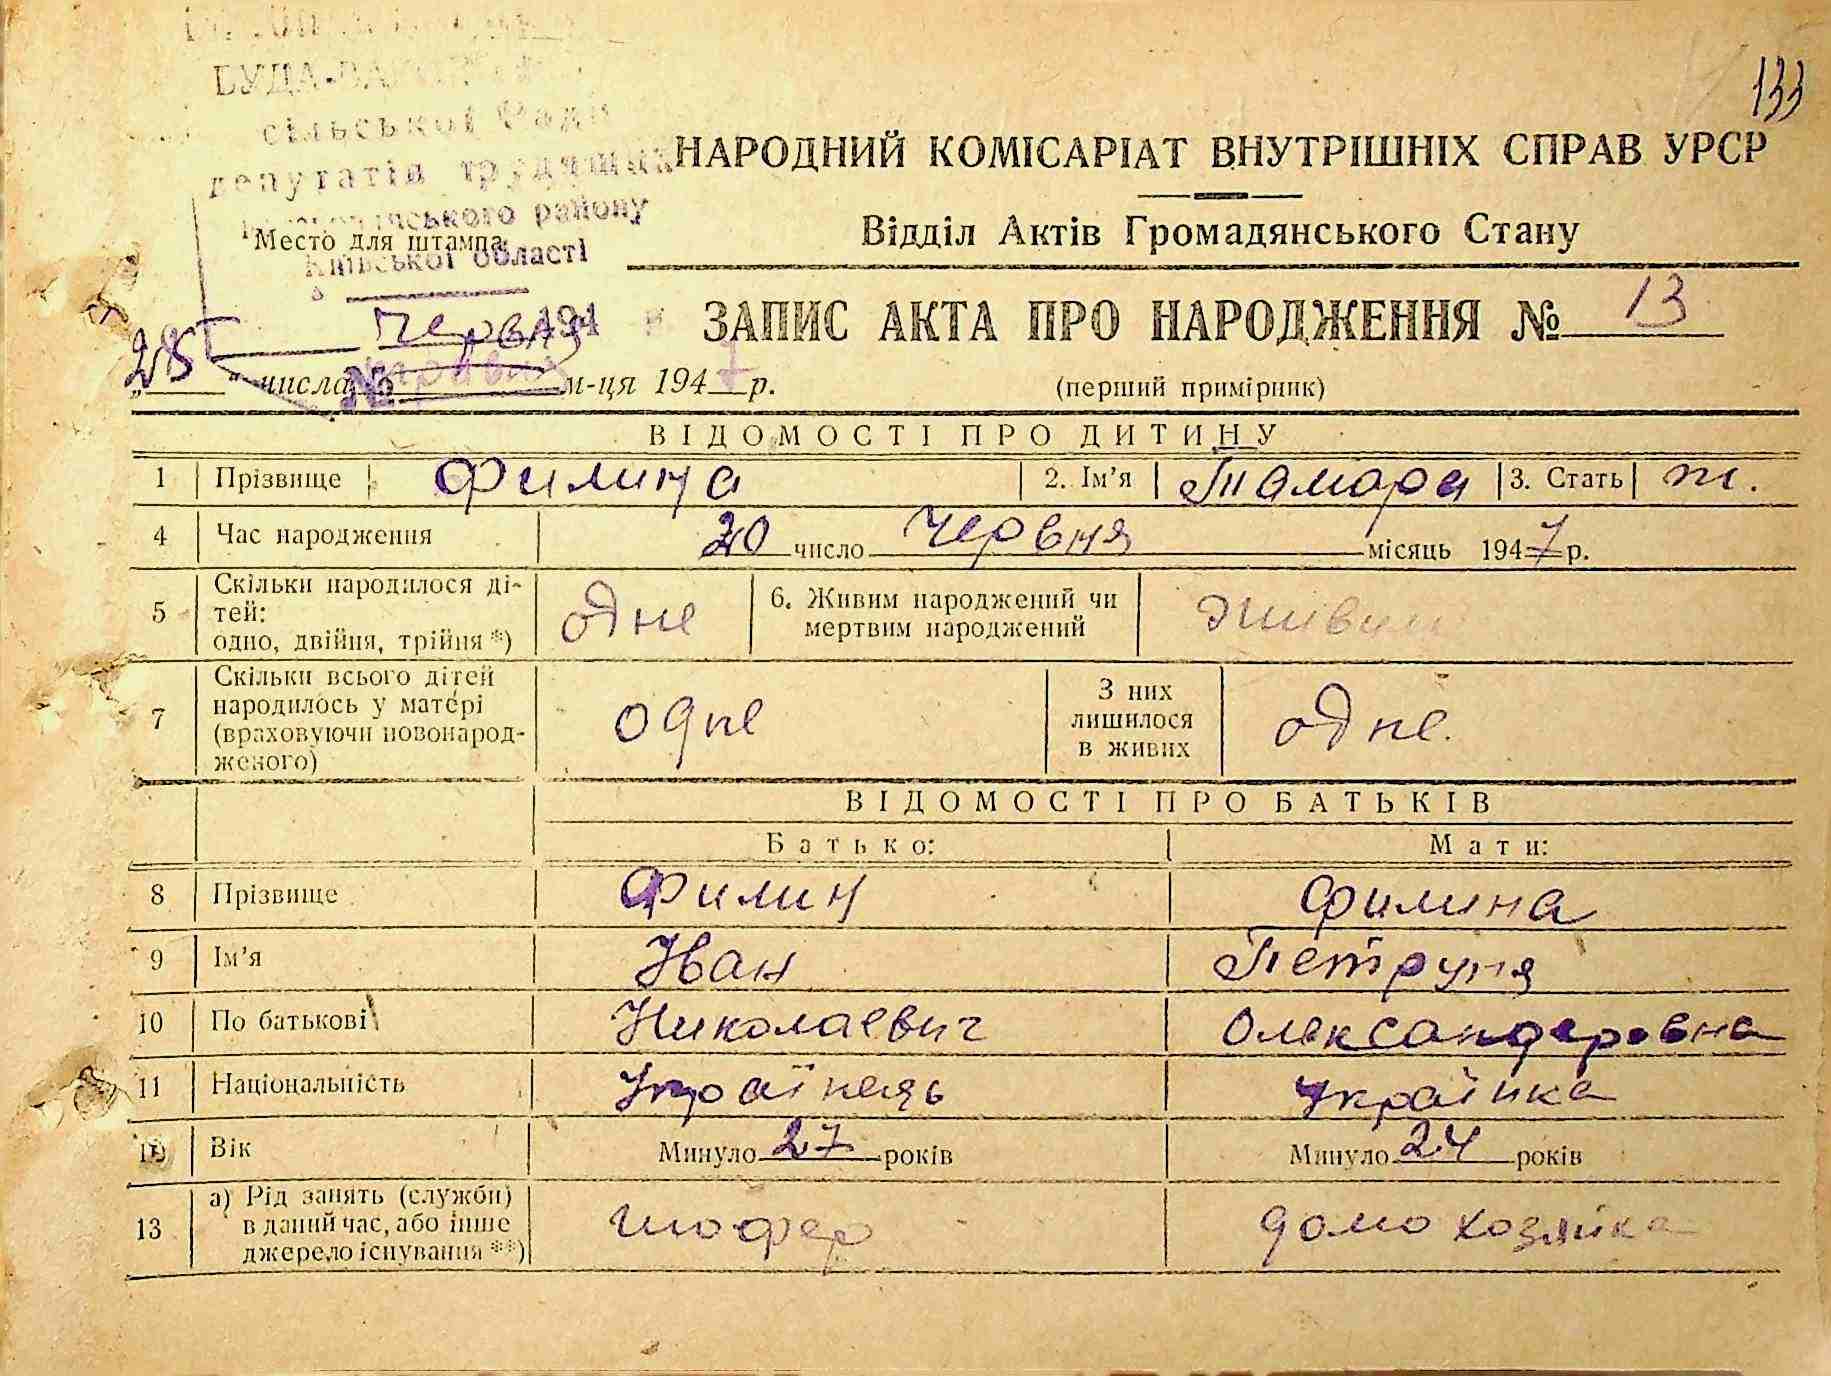 133
сільської Ради
депутатів трудящих
району
Київської області
Место для штампа
НАРОДНИЙ КОМІСАРІАТ ВНУТРІШНІХ СПРАВ УРСР
Відділ Актів Громадянського Стану
ЗАПИС АКТА ПРО НАРОДЖЕННЯ № 13
(перший примірник)
194
№
„28“ числа Червня м-ця 1947 р.
ВІДОМОСТІ ПРО ДИТИНУ
1 Прізвище Филина 2. Ім'я Тамара 3. Стать ж.
4 Час народження 20 число Червня місяць 1947 р.
5 Скільки народилося ді-
тей:
одно, двійня, трійня *) одне 6. Живим народжений чи
мертвим народжений живим
7 Скільки всього дітей
народилось у матері
(враховуючи новонарод-
женого) одне З них
лишилося
в живих одне.
ВІДОМОСТІ ПРО БАТЬКІВ
Батько: Мати:
8 Прізвище Филин Филина
9 Ім'я Іван Петруня
10 По батькові Николаевич Олександеровна
11 Національність Українець Українка
12 Вік Минуло 27 років Минуло 24 років
13 а) Рід занять (служби)
в даний час, або інше
джерело існування **) шофер домохозяйка